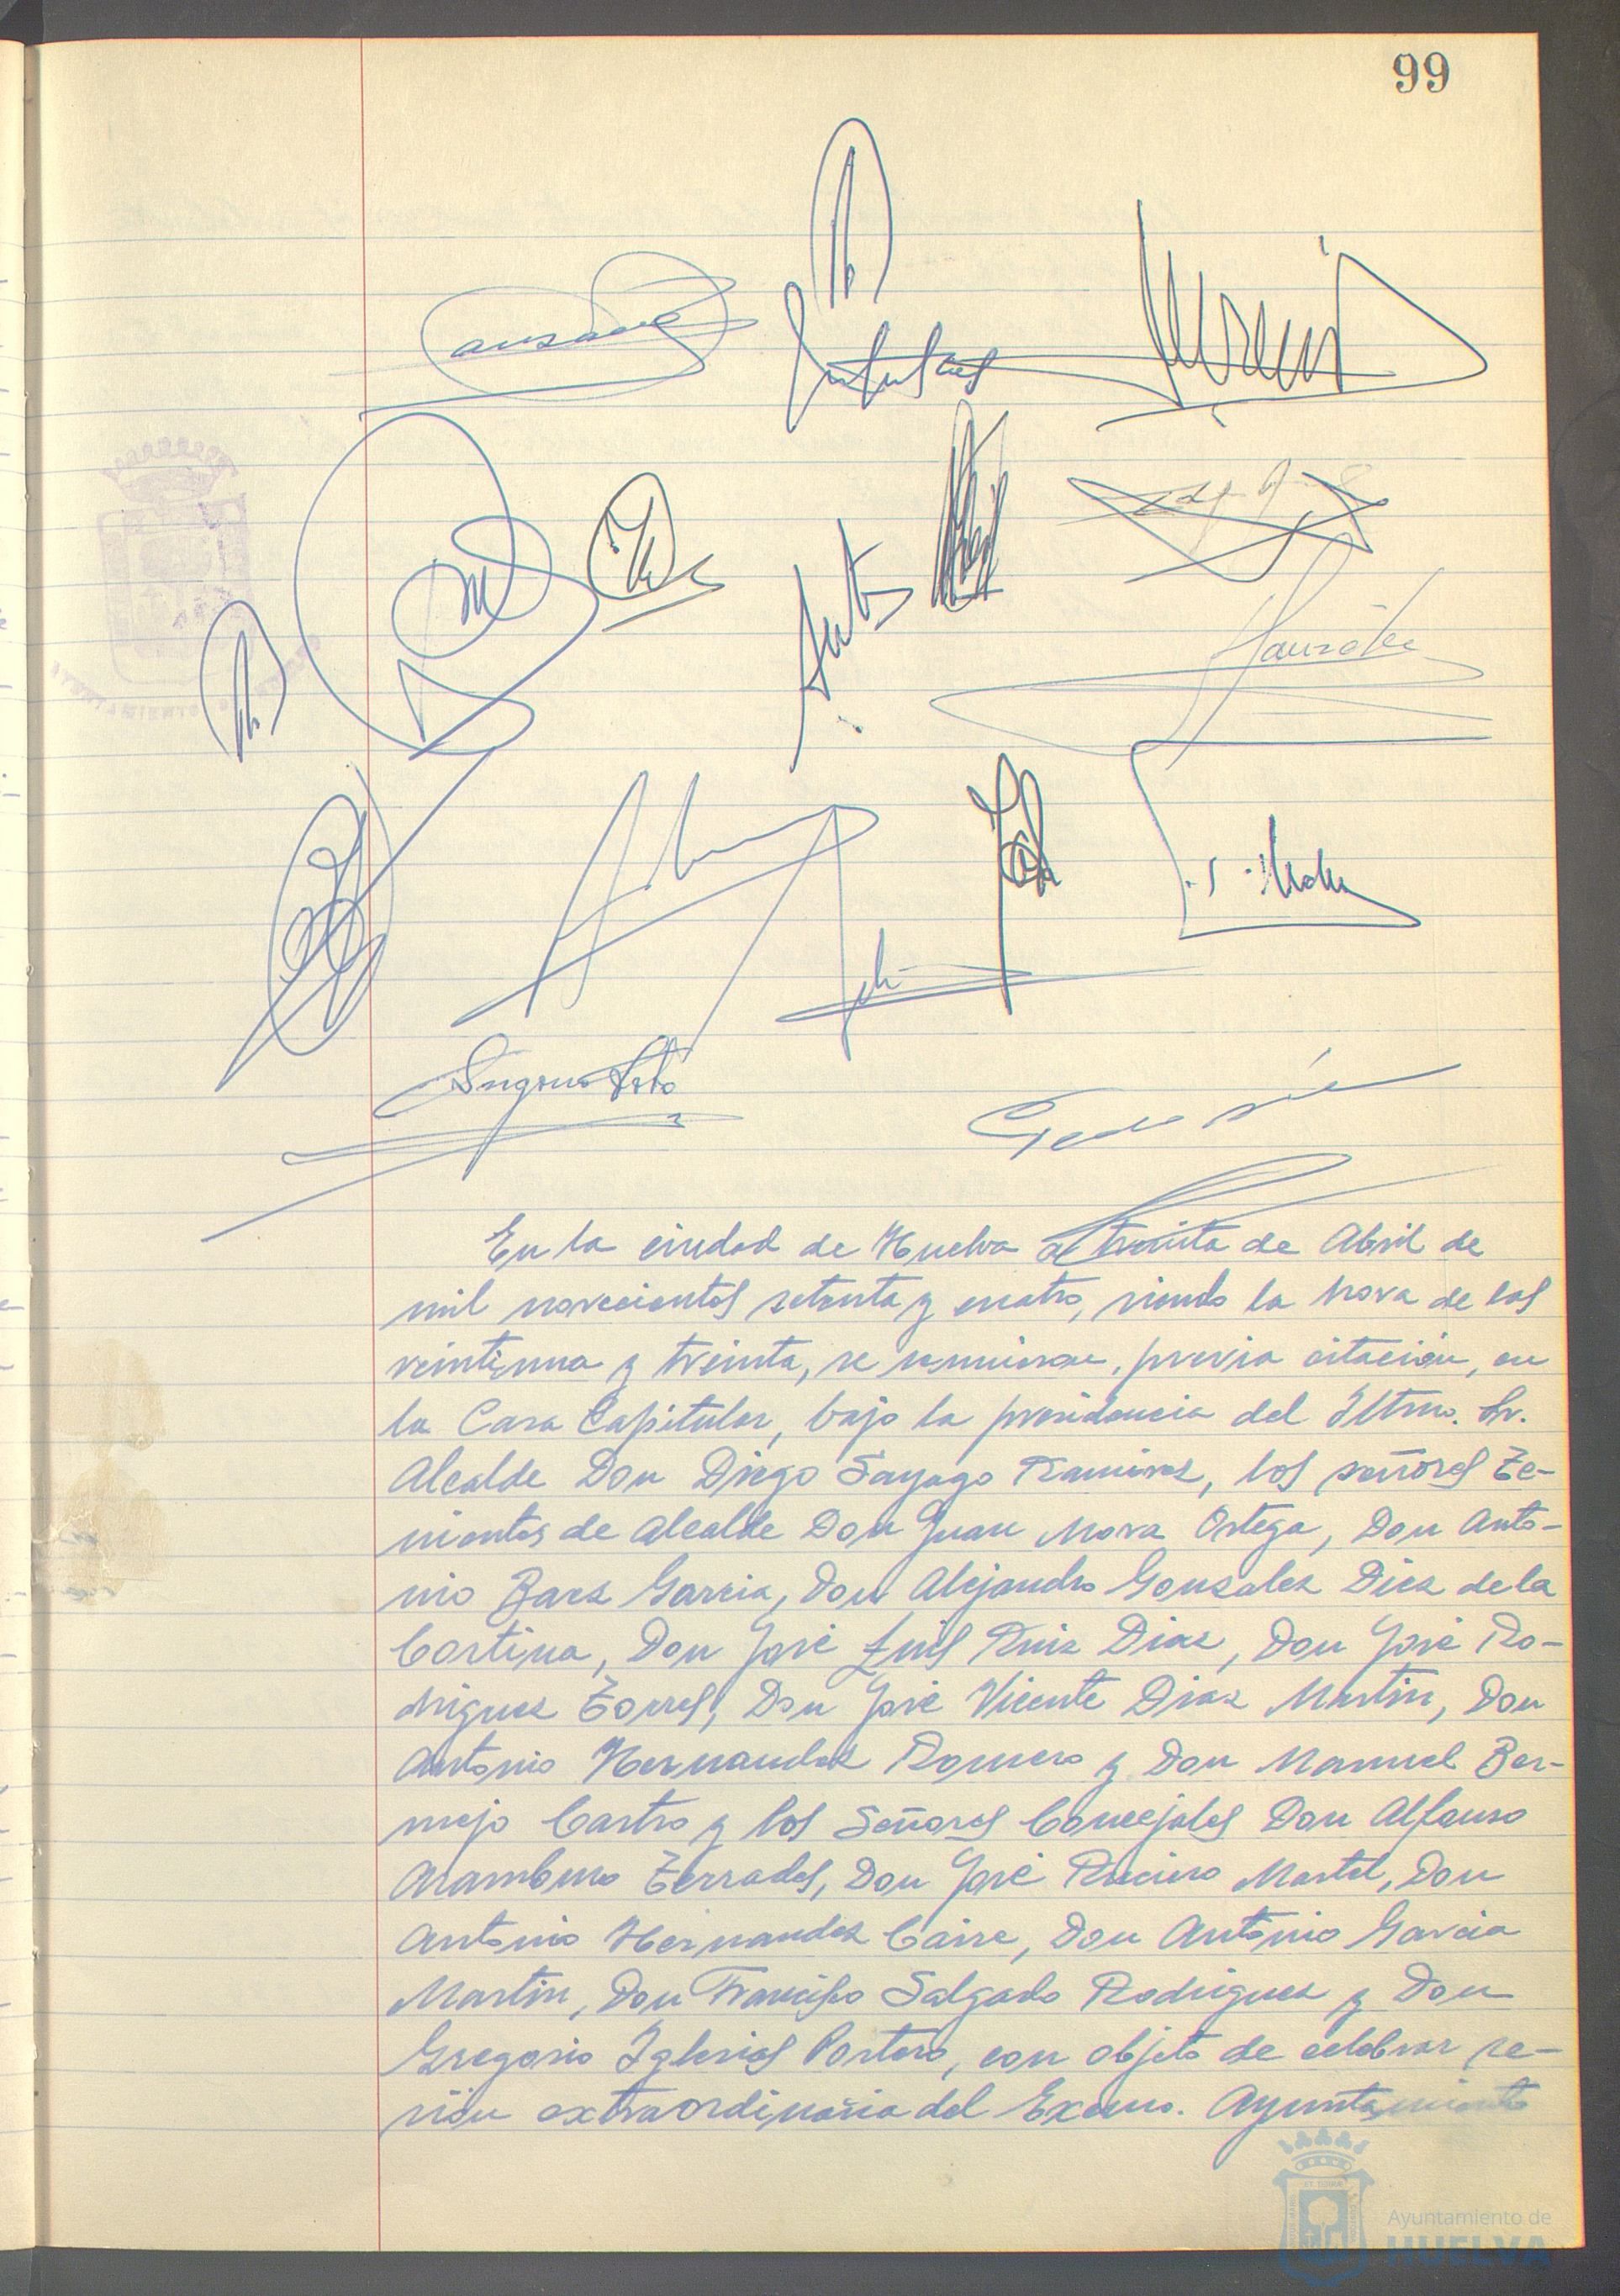 99
En la ciudad de Huelva a treinta de Abril de
mil novecientos setenta y cuatro, siendo la hora de las
veintiuna y treinta, se reunieron, previa citación, en
la Casa Capitular, bajo la presidencia del Iltmo. Sr.
Alcalde Don Diego Sayago Ramirez, los señores Te-
nientes de Alcalde Don Juan Mora Ortega, Don Anto-
nio Baez Garcia, Don Alejandro Gonzalez Diez de la
Cortina, Don José Luis Ruiz Diaz, Don José Ro-
driguez Torres, Don José Vicente Diaz Martin, Don
Antonio Hernandez Romero y Don Manuel Ber-
mejo Castro y los Señores Concejales Don Alfonso
Aramburo Terrades, Don José Ruciero Martel, Don
Antonio Hernandez Caire, Don Antonio Garcia
Martin, Don Francisco Salgado Rodriguez y Don
Gregorio Iglesias Portero, con objeto de celebrar se-
sión extraordinaria del Excmo. Ayuntamiento
Ayuntamiento de
HUELVA